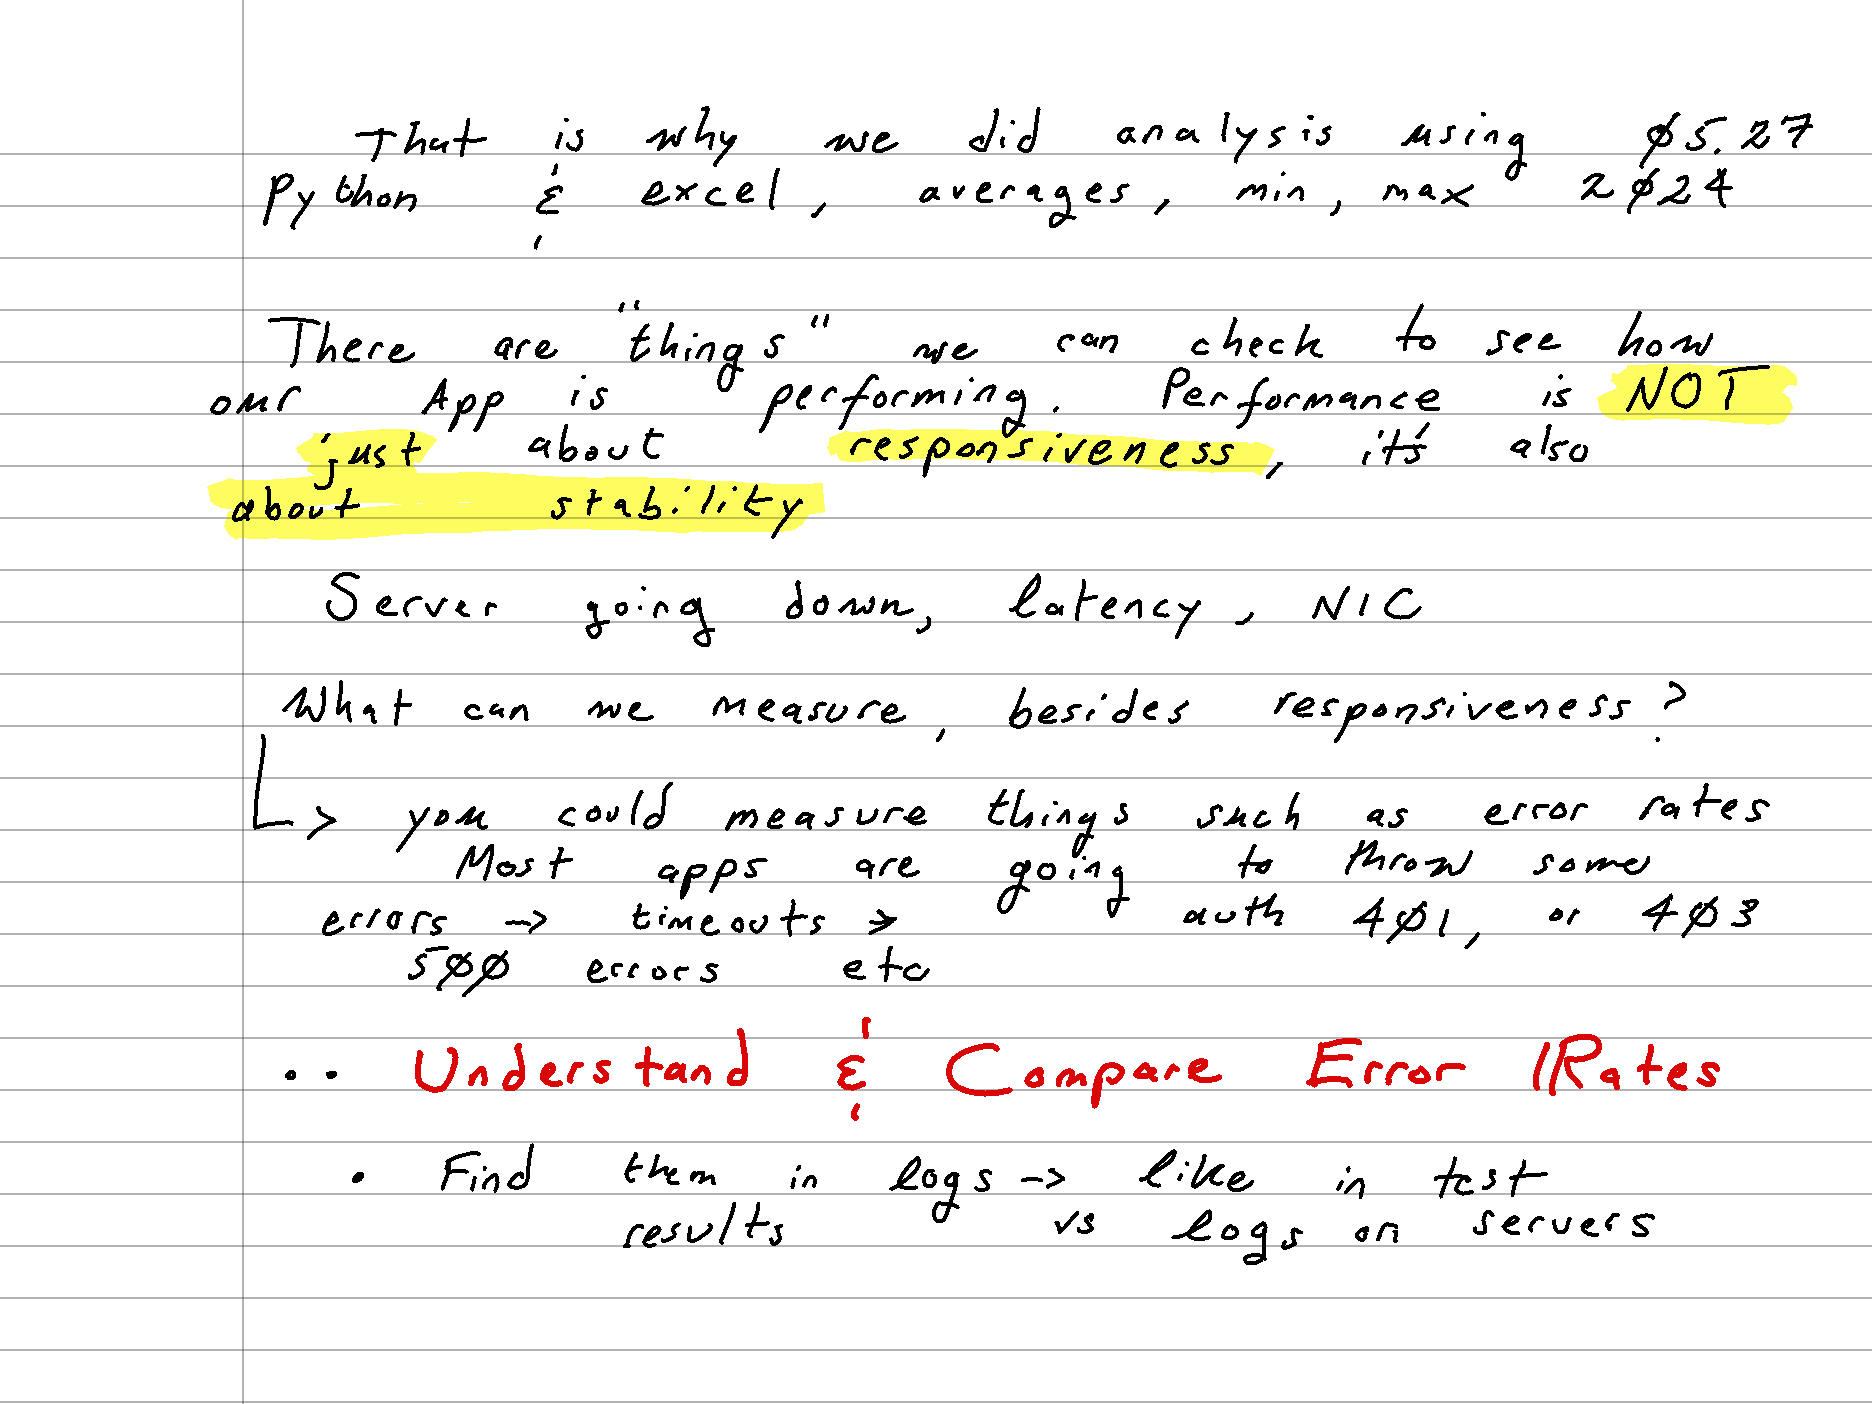 That is why we did analysis using 05.27
Python & excel, averages, min, max 2024
There are "things" we can check to see how
our App is performing. Performance is NOT
just about responsiveness, it's also
about stability
Server going down, latency, NIC
What can we measure, besides responsiveness?
↳ you could measure things such as error rates
Most apps are going to throw some
errors → timeouts → auth 401, or 403
500 errors etc
•• Understand & Compare Error Rates
• Find them in logs -> like in test
results vs logs on servers